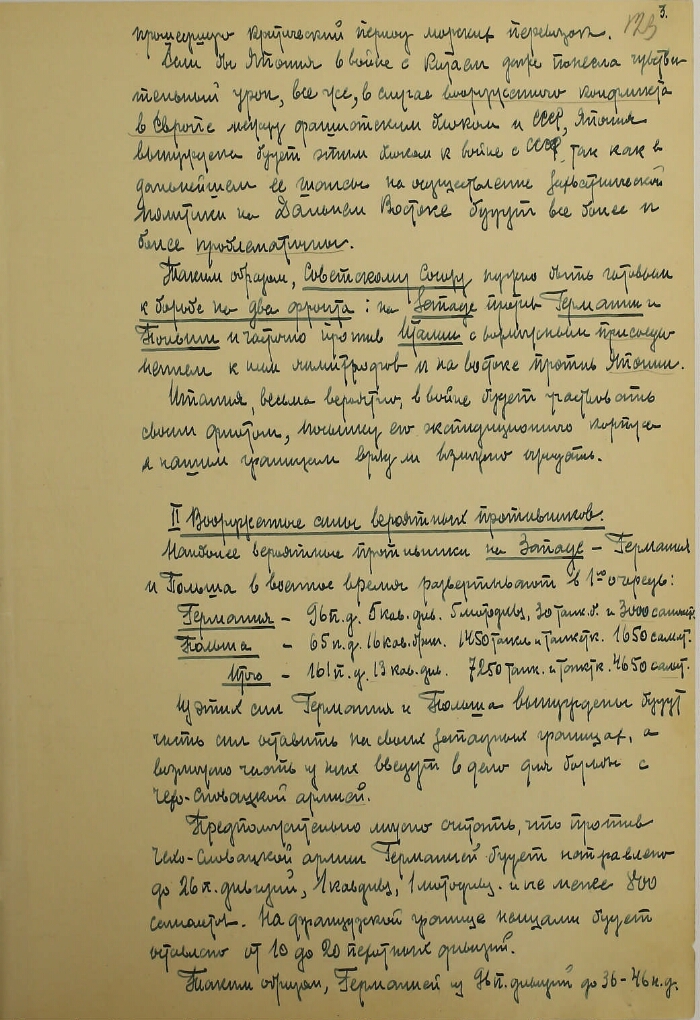 3.
123
прошедшую критический период морских перевозок.
Если бы Япония в войне с Китаем даже понесла чувстви
тельный урон, все же, в случае вооруженного конфликта
в Европе между фашистским блоком и СССР, Япония
вынуждена будет этим блоком к войне с СССР, так как в
дальнейшем ее шансы на осуществление захватнической
политики на Дальнем Востоке будут все более и
более проблематичны.
Таким образом, Советскому Союзу нужно быть готовым
к борьбе на два фронта: на Западе против Германии и
Польши и частично против Италии с возможным присоеди
нением к ним лимитрофов и на востоке против Японии.
Италия, весьма вероятно, в войне будет участвовать
своим флотом, посылку его экспедиционного корпуса
к нашим границам вряд ли возможно ожидать.
II Вооруженные силы вероятных противников.
Наиболее вероятные противники на Западе – Германия
и Польша в военное время развертывают в 1ую очередь:
Германия – 96 п.д. 5 кав. див. 5 мотодивиз, 30 танк. б. и 3000 самолет.
Польша – 65 п.д. 16 кав. бриг. 1450 танк. и танкетк. 1650 самол.
Итого – 161 п.д. 13 кав. див. 7250 танк. и танкетк. 4650 самол.
Из этих сил Германия и Польша вынуждены будут
часть сил оставить на своих западных границах, а
возможно часть из них введут в дело для борьбы с
чехо-словацкой армией.
Предположительно можно считать, что против
чехо-словацкой армии Германией будет направлено
до 26 п. дивизий, 1 кавдивиз, 1 мотодивиз. и не менее 800
самолетов. На французской границе немцами будет
оставлено от 10 до 20 пехотных дивизий.
Таким образом, Германией из 96 п. дивизий до 36-46 п.д.